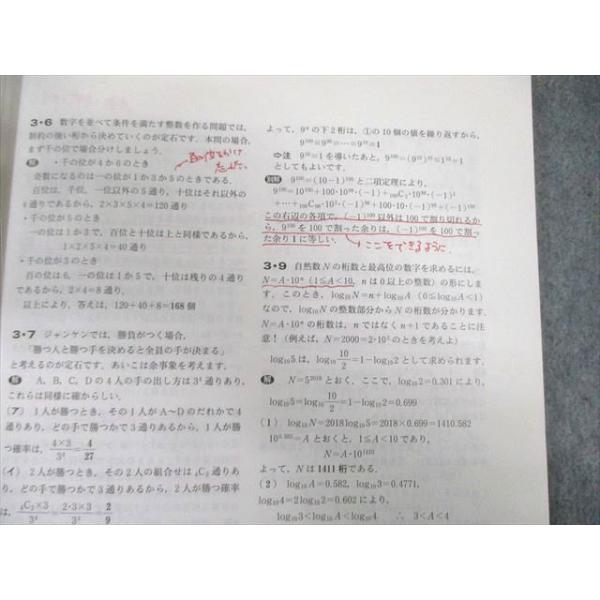 3・6 数字を並べて条件を満たす整数を作る問題では、
制約の強い桁から決めていくのが定石です．本問の場合，
まず千の位で場合分けしましょう．
解 ・千の位が4か6のとき
奇数になるのは一の位が1か3か5のときである．
百の位は，千位，一位以外の5通り，十位はそれ以外の
4通りであるから，2×3×5×4=120通り
・千の位が5のとき
一の位は1か3で，百位と十位は上と同様であるから，
1×2×5×4=40通り
・千の位が3のとき
百の位は6，一の位は1か5で，十位は残りの4通り
であるから，2×4=8通り．
以上により，答えは，120+40+8=168個
3・7 ジャンケンでは，勝負がつく場合，
「勝つ人と勝つ手を決めると全員の手が決まる」
と考えるのが定石です．あいこは余事象を考えます．
解 A，B，C，Dの4人の手の出し方は3⁴通りあり，
これれは同様に確からしい．
(ア) 1人が勝つとき，その1人がA〜Dのだれかで4
通りあり，どの手で勝つかで3通りあるから，1人が勝
つ確率は，4×3/3⁴=4/27
(イ) 2人が勝つとき，その2人の組合せは₄C₂通りあ
り，どの手で勝つかで3通りあるから，2人が勝つ確率
は，₄C₂×3/3⁴=2・3×3/3⁴=2/9
よって，9ⁿの下2桁は，①の10個の値を繰り返すから，
9¹⁰⁰≡9⁹⁰≡…≡9¹⁰≡1
⇨注 9¹⁰≡1を導いたあと，9¹⁰⁰=(9¹⁰)¹⁰≡1¹⁰=1
としてもよいです．
別解 9¹⁰⁰=(10−1)¹⁰⁰と二項定理により，
9¹⁰⁰=10¹⁰⁰+100・10⁹⁹・(−1)+₁₀₀C₂・10⁹⁸・(−1)²
+…+₁₀₀C₉₈・10²・(−1)⁹⁸+100・10・(−1)⁹⁹+(−1)¹⁰⁰
この右辺の各項で，(−1)¹⁰⁰以外は100で割り切れるか
ら，9¹⁰⁰を100で割った余りは，(−1)¹⁰⁰を100で割っ
た余り1に等しい．
ここをできるように
3・9 自然数Nの桁数と最高位の数字を求めるには，
N=A・10ⁿ (1≦A<10，nは0以上の整数) の形にしま
す．このとき，log₁₀N=n+log₁₀A (0≦log₁₀A<1)
なので，log₁₀Nの整数部分からNの桁数が分かります．
N=A・10ⁿの桁数は，nではなくn+1であることに注
意！(例えば，N=2000=2・10³のときを考えよ)
log₁₀5は，log₁₀10/2=1−log₁₀2として求められます．
解 N=5²⁰¹⁸とおく．ここで，log₁₀2=0.301により，
log₁₀5=log₁₀10/2=1−log₁₀2=0.699
(1) log₁₀N=2018log₁₀5=2018×0.699=1410.582
10⁰·⁵⁸²=Aとおくと，1≦A<10であり，
N=A・10¹⁴¹⁰
よって，Nは1411桁である．
(2) log₁₀A=0.582，log₁₀3=0.4771，
log₁₀4=2log₁₀2=0.602により，
log₁₀3<log₁₀A<log₁₀4 ∴ 3<A<4